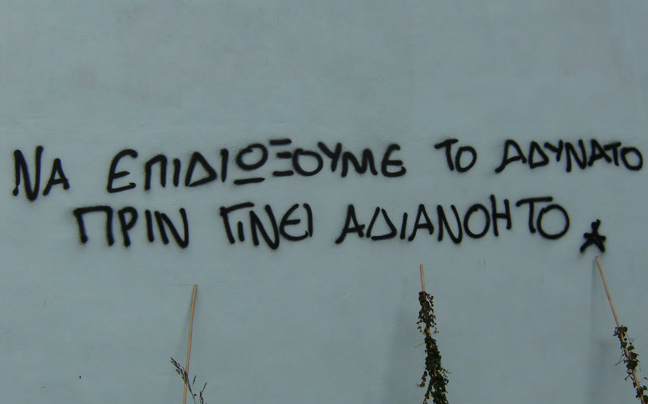 ΝΑ ΕΠΙΔΙΩΞΟΥΜΕ ΤΟ ΑΔΥΝΑΤΟ
ΠΡΙΝ ΓΙΝΕΙ ΑΔΙΑΝΟΗΤΟ